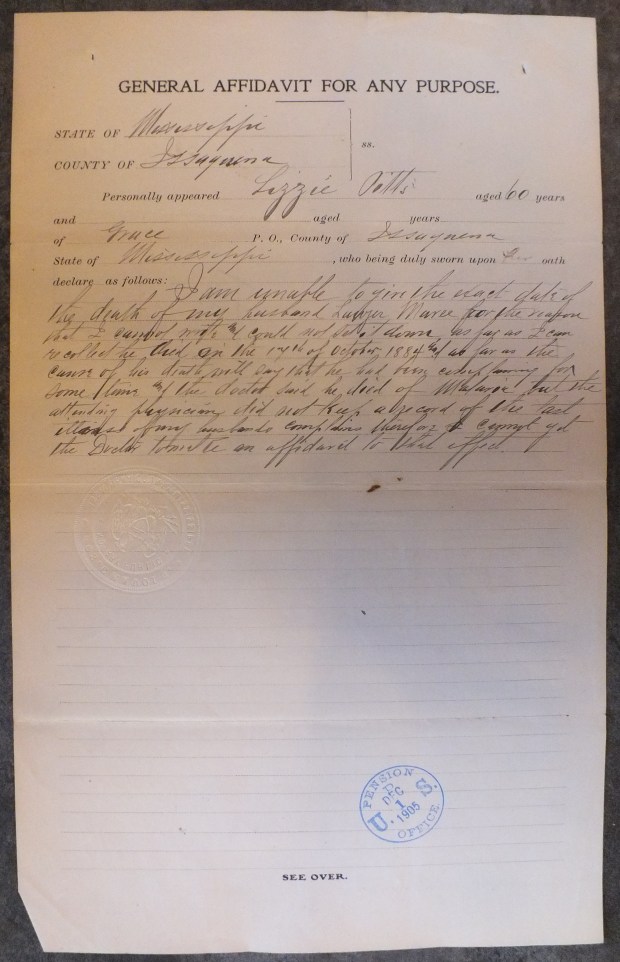 GENERAL AFFIDAVIT FOR ANY PURPOSE.
STATE OF Mississippi
ss.
COUNTY OF Issaquena
Personally appeared Lizzie Pitts aged 60 years
and aged years
of Grace P. O., County of Issaquena
State of Mississippi, who being duly sworn upon her oath
declare as follows: I am unable to give the exact date of
the death of my husband for the reason
that I cannot write & I could not set it down as far as I can
recollect he died on the 17th of October, 1884 & as far as the
cause of his death, will say that he had been complaining for
some time & the doctor said he died of Malaria, but the
attending physician did not keep a record of the last
of my husbands complains therefore I cannot get
the Doctor to make an affidavit to that effect.
PENSION
D
DEC
1
1905
U. S.
OFFICE
SEE OVER.